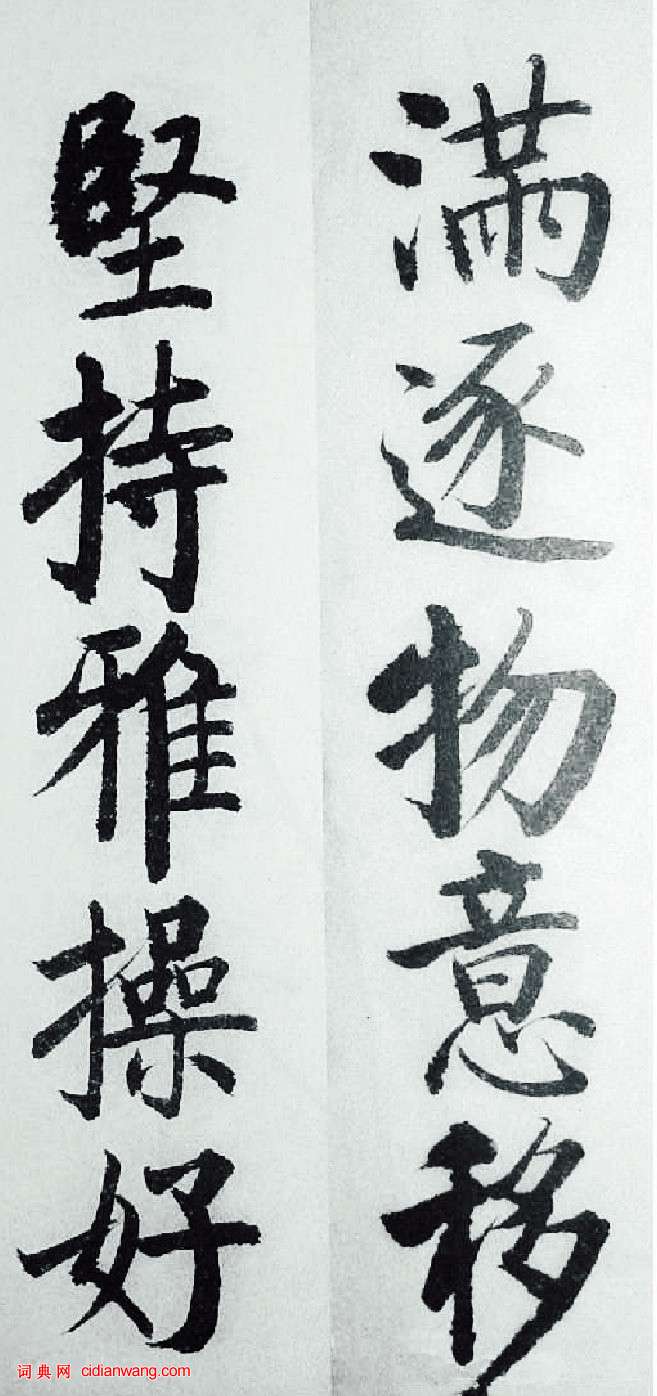 满逐物意移
堅持雅操好
词典网 cidianwang.com